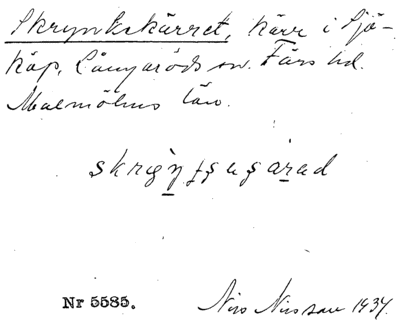 Skrynkekärret, kärr i Sjö-
köp, Långaröds sn. Färs hd.
Malmöhus län.
Nr 5585.
Nils Nilsson 1937.